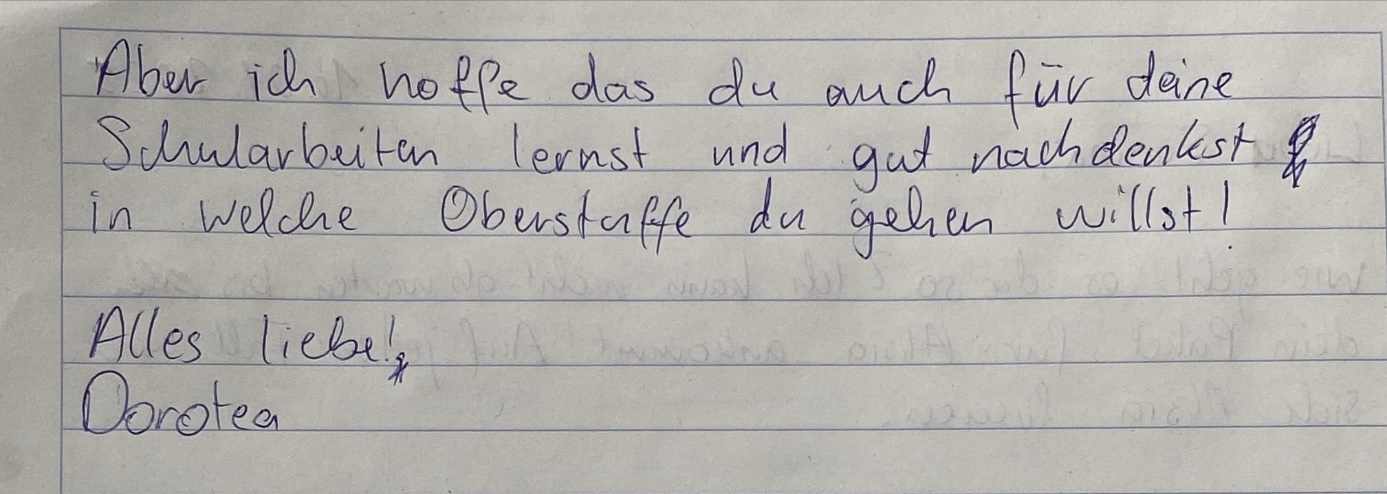 Aber ich hoffe das du auch für deine
Schularbeiten lernst und gut nachdenkst
in welche Oberstuffe du gehen willst!
Alles liebe!
Dorotea